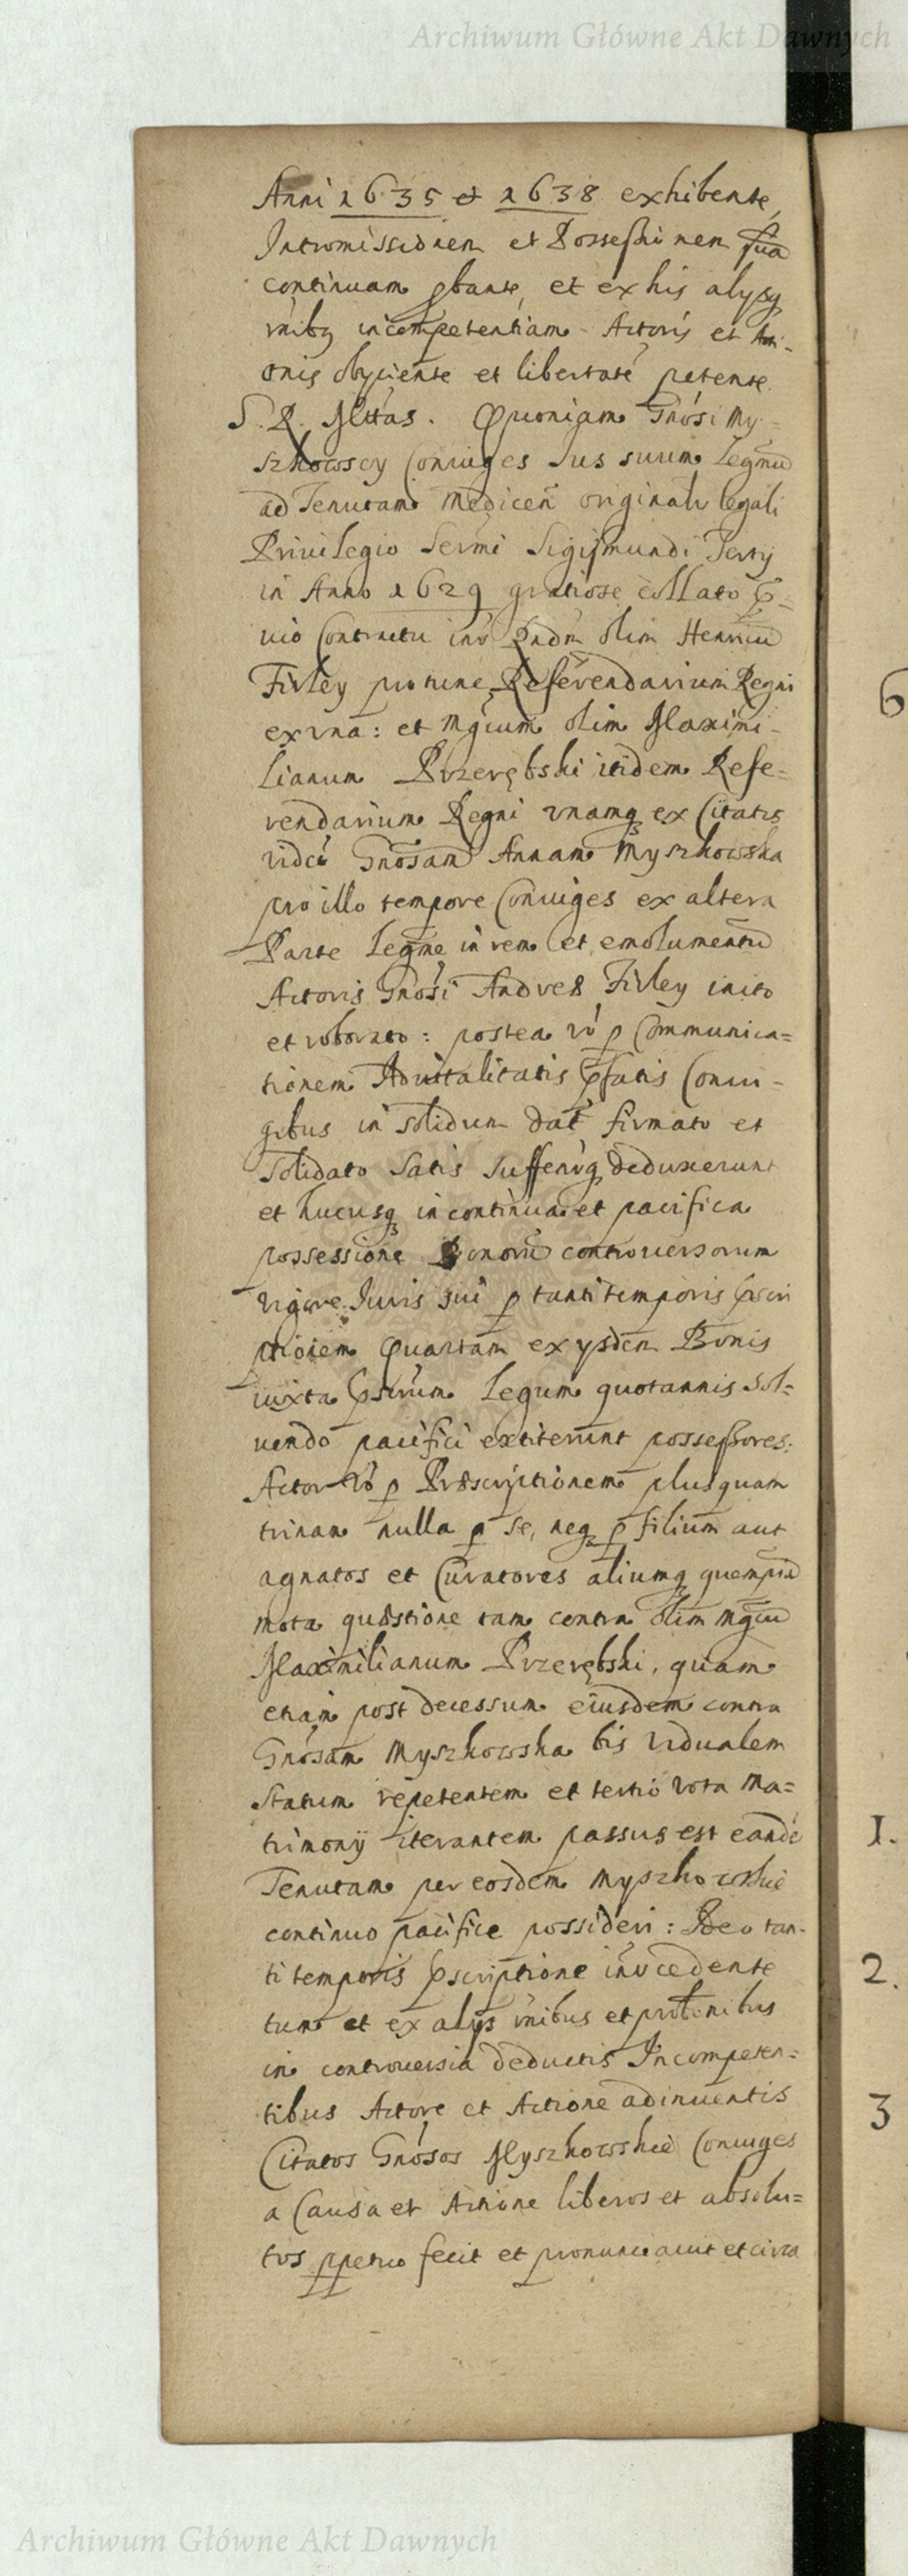 Archiwum Główne Akt Dawnych
Anni 1635 et 1638 exhibente,
Intromissionem et Possessionem sua
continuam pbante, et ex his alysq
rnibq incompetentiam Actoris et Acti-
onis obyciente et libertate petente.
S. R. Mttas. Quoniam Gnosi My-
szkowscy Coniuges Jus suum legmu
ad Tenutam Medicen originali legali
Privilegio Sermi Sigismundi Terty
in Anno 1629 gratiose collato
uio Contractu int Gndm olim Henricu
Firley pro tunc Referendarium Regni
ex vna: et Mgcum olim Maximi-
lianum Przerębski itidem Refe=
rendarium Regni vnamq ex Citatis
vidct Gnosam Annam Myszkowska
pro illo tempore Coniuges ex altera
Parte legme in rem et emolumentu
Actoris Gnosi Andreæ Firley inito
et roborato: postea vo p Communica=
tionem Aduitalitatis pfatis Coniu-
gibus in solidum dat firmato et
solidato satis sufferq deduxerunt
et hucusq in continua et pacifica
possessione Bonoru controuersorum
vigore Juris sui p tanti temporis pscri
ptioiem Quartam ex ysdem Bonis
iuxta pscrum Legum quotannis sol=
uendo pacifici extiterunt possessores.
Actor vo p Præscriptionem plusquam
trinam nulla p se, neq p filium aut
agnatos et Curatores aliumq quempia
mota quæstione tam contra olim Mgcu
Maximilianum Przerębski, quam
etiam post decessum eiusdem contra
Gnosam Myszkowska bis vidualem
statum repetentem et tertio vota Ma=
trimony iterantem passus est eande
Tenutam per eosdem Myszkowskie
continuo pacifice possideri: Ideo tan-
ti temporis pscriptione intcedente
tum et ex alys rnibus et probnibus
in controuersia deductis Incompeten=
tibus Actore et Actione adinuentis
Citatos Gnosos Myszkowskie Coniuges
a Causa et Actione liberos et absolu=
tos ppetuo fecit et pronunciauit et circa
6
1.
2.
3
Archiwum Główne Akt Dawnych